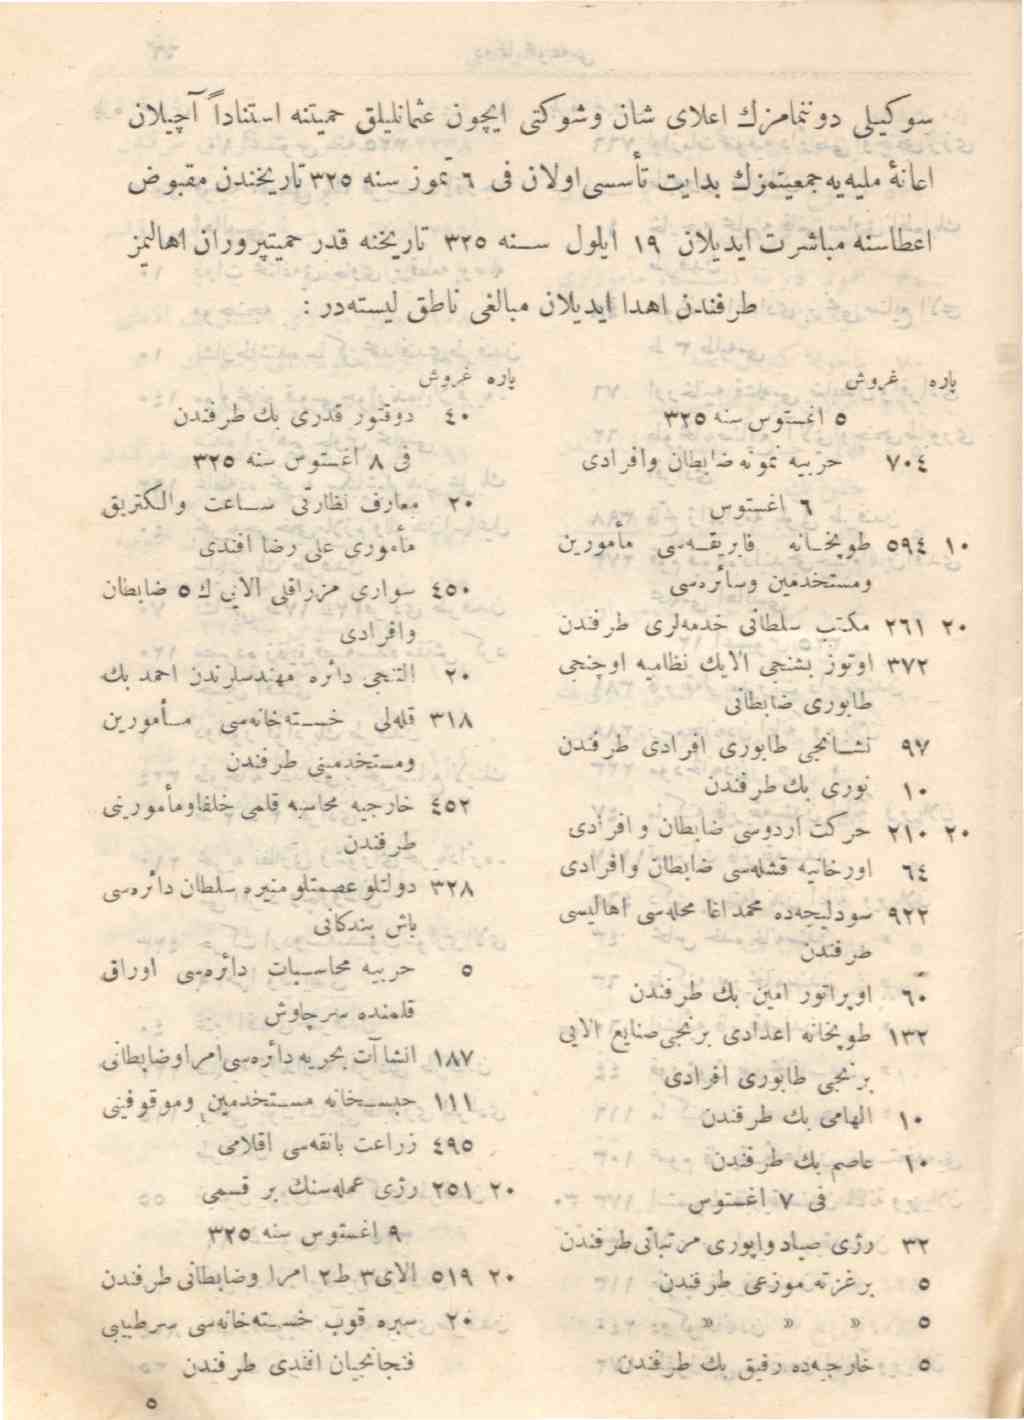 سوكیلی دوننمامزك اعلای شان وشوكتی ایچون عثمانلیلق حمیتنه استناداً آچیلان
اعانهٔ ملیه‌یه جمعیتمزك بدایت تأسسی اولان فی ٦ تموز سنه ٣٢٥ تاریخندن مقبوض
اعطاسنه مباشرت ایدیلان ١٩ ایلول سنه ٣٢٥ تاریخنه قدر حمیتپروران اهالیمز
طرفندن اهدا ایدیلان مبالغی ناطق لیسته‌در :
پاره غروش
٥ اغستوس سنه ٣٢٥
٧٠٤ حربیه نمونه ضابطان وافرادی
٦ اغستوس
١٠ ٥٩٤ طوپخانه فابریقه‌سی مأمورین
ومستخدمین وسائره‌سی
٢٠ ٢٦١ مكتب سلطانی خدمه‌لری طرفندن
٣٧٢ اوتوز بشنجی الایك نظامیه اوچنجی
طابوری ضابطانی
٩٧ نشانجی طابوری افرادی طرفندن
١٠ نوری بك طرفندن
٢٠ ٢١٠ حركت اردوسی ضابطان و افرادی
٦٤ اورخانیه قشله‌سی ضابطان وافرادی
٩٢٢ سودلیجه‌ده محمد اغا محله‌سی اهالیسی
طرفندن
٦٠ اوپراتور امین بك طرفندن
١٣٢ طوپخانه اعدادی برنجی صنایع الایی
برنجی طابوری افرادی
١٠ الهامی بك طرفندن
١٠ عاصم بك طرفندن
فی ٧ اغستوس
٣٢ رژی صیاد واپوری مرتباتی طرفندن
٥ برغزته موزعی طرفندن
٥ » » »
٥ خارجیه‌ده رفیق بك طرفندن
پاره غروش
٤٠ دوقتور قدری بك طرفندن
فی ٨ اغستوس سنه ٣٢٥
٢٠ معارف نظارتی ساعت والكتریق
مأموری علی رضا افندی
٤٥٠ سواری مزراقلی الایی ك ٥ ضابطان
وافرادی
٢٠ التنجی دائره مهندسلرندن احمد بك
٣١٨ قله‌لی خسته‌خانه‌سی مأمورین
ومستخدمینی طرفندن
٤٥٢ خارجیه محاسبه قلمی خلفاومأمورینی
طرفندن
٣٢٨ دولتلو عصمتلو منیره سلطان دائره‌سی
باش بندكانی
٥ حربیه محاسبات دائره‌سی اوراق
قلمنده سرچاوش
١٨٧ انشاآت بحریه دائره‌سی امرا وضابطانی
١١١ حبسخانه مستخدمین وموقوفینی
٤٩٥ زراعت بانقه‌سی اقلامی
٢٠ ٢٥١ رژی عمله‌سنك بر قسمی
٩ اغستوس سنه ٣٢٥
٢٠ ٥١٩ الای٣ ط٢ امرا وضابطانی طرفندن
٢٠ سیره قوب خسته‌خانه‌سی سرطبیبی
فنجانجیان افندی طرفندن
٥